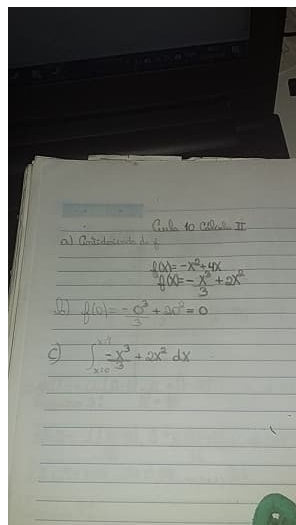 Aula 10 Cálculo II
a) Antiderivada de f
f(x) = -x² + 4x
f(x) = -x³/3 + 2x²
b) f(0) = -0³/3 + 2·0² = 0
c) ∫ -x³/3 + 2x² dx
x=0